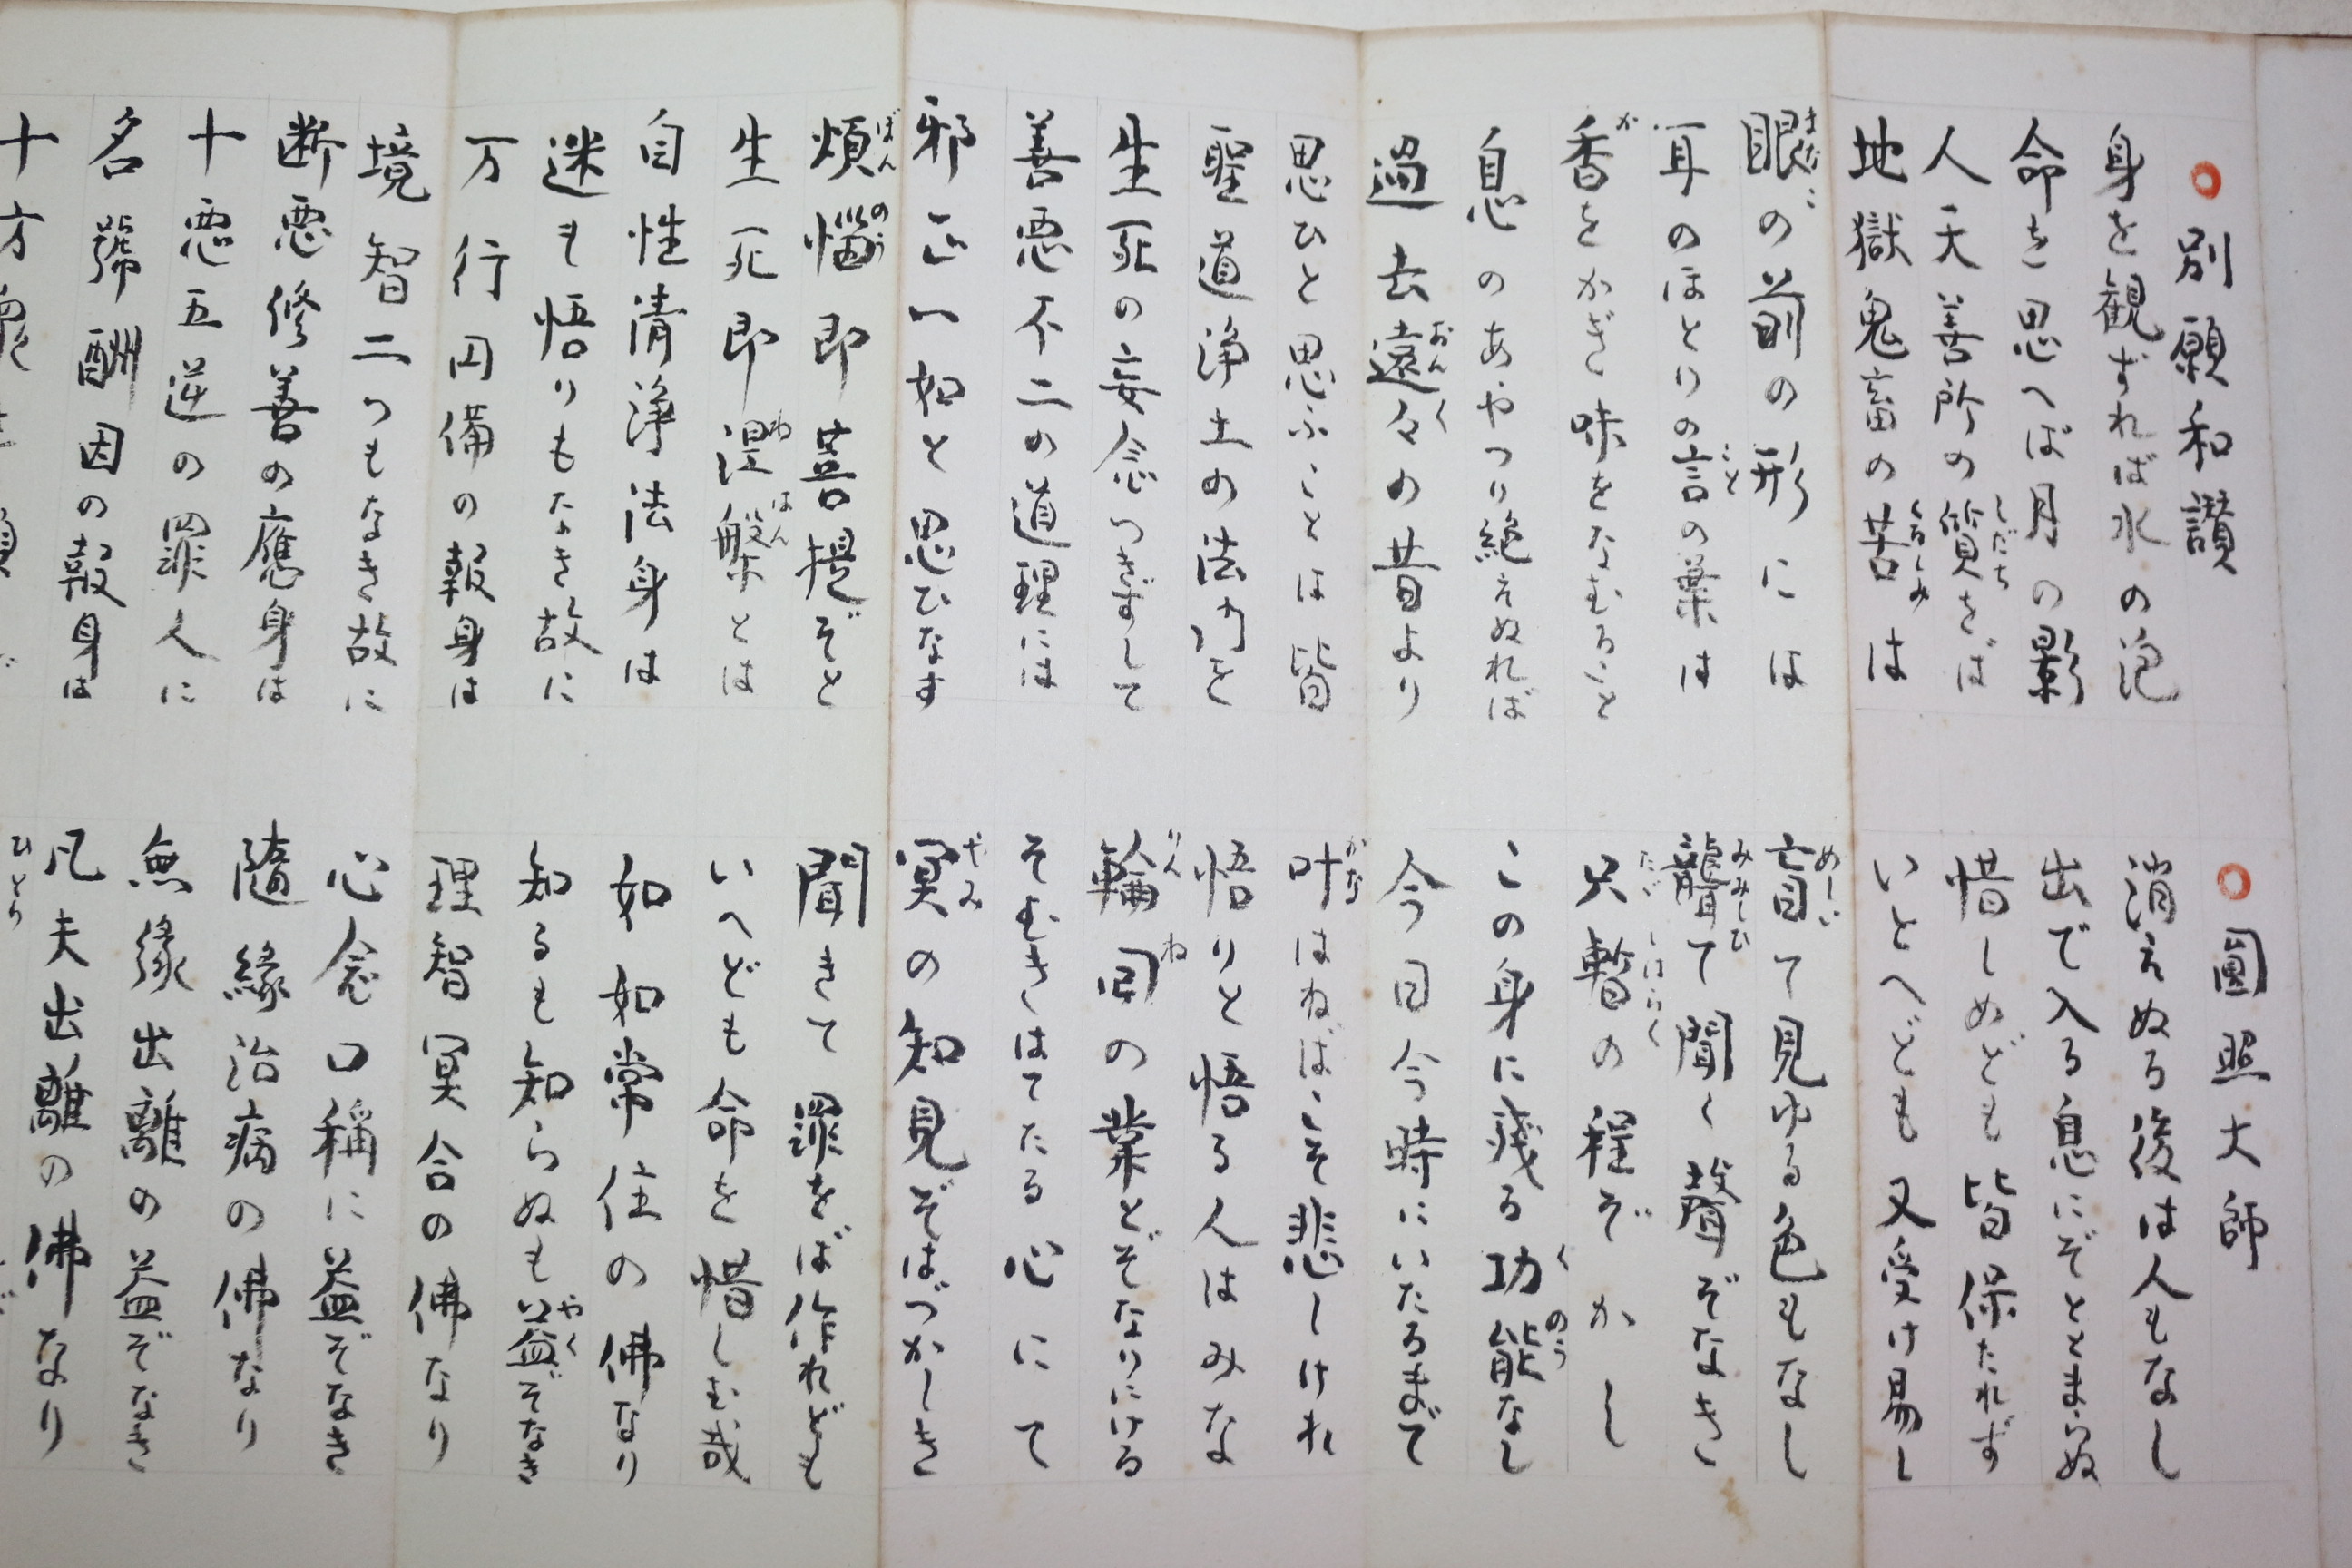 別願和讃
圓照大師
身を観ずれば水の泡
消えぬる後は人もなし
命を思へば月の影
出で入る息にぞとゞまらぬ
人天善所の質をば
しだち
惜しめども皆保たれず
地獄鬼畜の苦は
くるしみ
いとへども又受け易し
眼の前の形には
まなこ
盲て見ゆる色もなし
めしい
耳のほとりの言の葉は
こと
聾て聞く聲ぞなき
みみしひ
香をかぎ味をなむること
か
只暫の程ぞかし
たゞしばらく
息のあやつり絶えぬれば
この身に残る功能なし
くのう
過去遠々の昔より
おんく
今日今時にいたるまで
思ひと思ふことは皆
叶はねばこそ悲しけれ
かな
聖道浄土の法門を
悟りと悟る人はみな
生死の妄念つきずして
輪回の業とぞなりにける
りんね
善悪不二の道理には
そむきはてたる心にて
邪正一如と思ひなす
冥の知見ぞはづかしき
やみ
煩悩即菩提ぞと
ぼんのう
聞きて罪をば作れども
生死即涅槃とは
ねはん
いへども命を惜しむ哉
自性清浄法身は
如如常住の佛なり
迷も悟りもなき故に
知るも知らぬも益ぞなき
やく
万行円備の報身は
理智冥合の佛なり
境智二つもなき故に
心念口稱に益ぞなき
断悪修善の應身は
隨緣治病の佛なり
十悪五逆の罪人に
無縁出離の益ぞなき
名號酬因の報身は
凡夫出離の佛なり
十方
ひとり